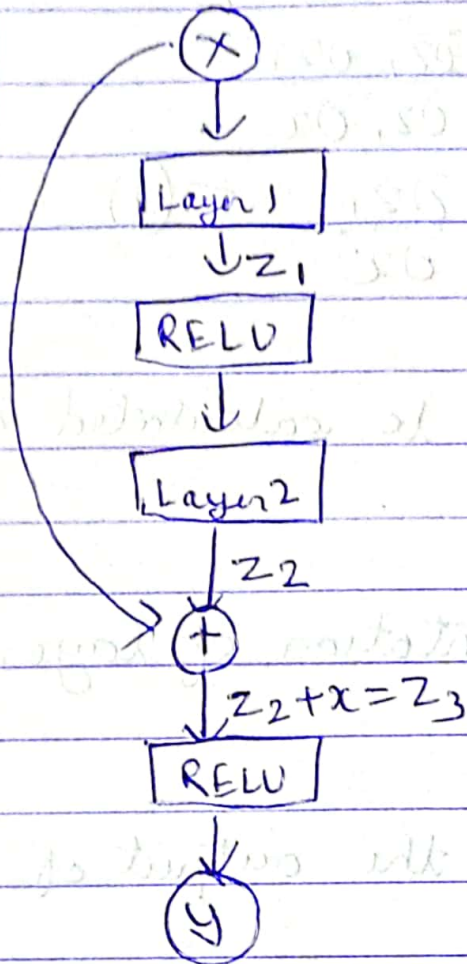 x
Layer 1
z1
RELU
Layer 2
z2
+
z2+x=z3
RELU
y